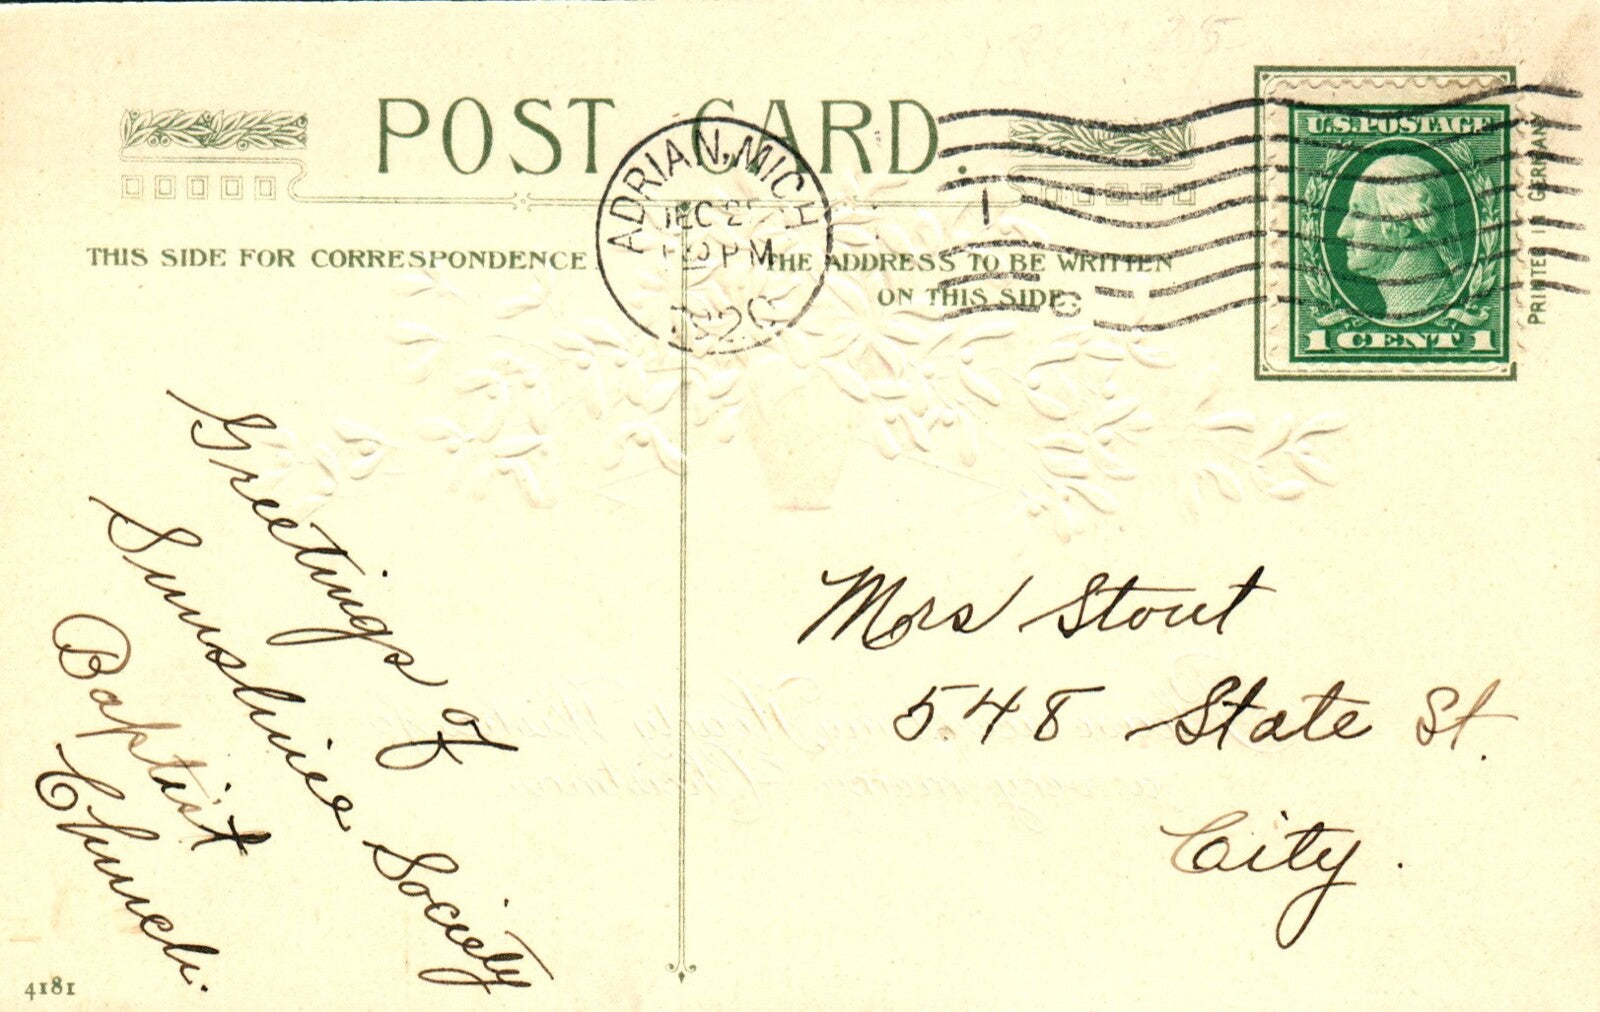 POST CARD.
ADRIAN, MICH
DEC 2
PM
1
U.S. POSTAGE
1 CENT 1
PRINTED IN GERMANY
THIS SIDE FOR CORRESPONDENCE.
THE ADDRESS TO BE WRITTEN
ON THIS SIDE.
Greetings of
Sunshine Society
Baptist
Church.
Mrs Stout
548 State St.
City.
4181